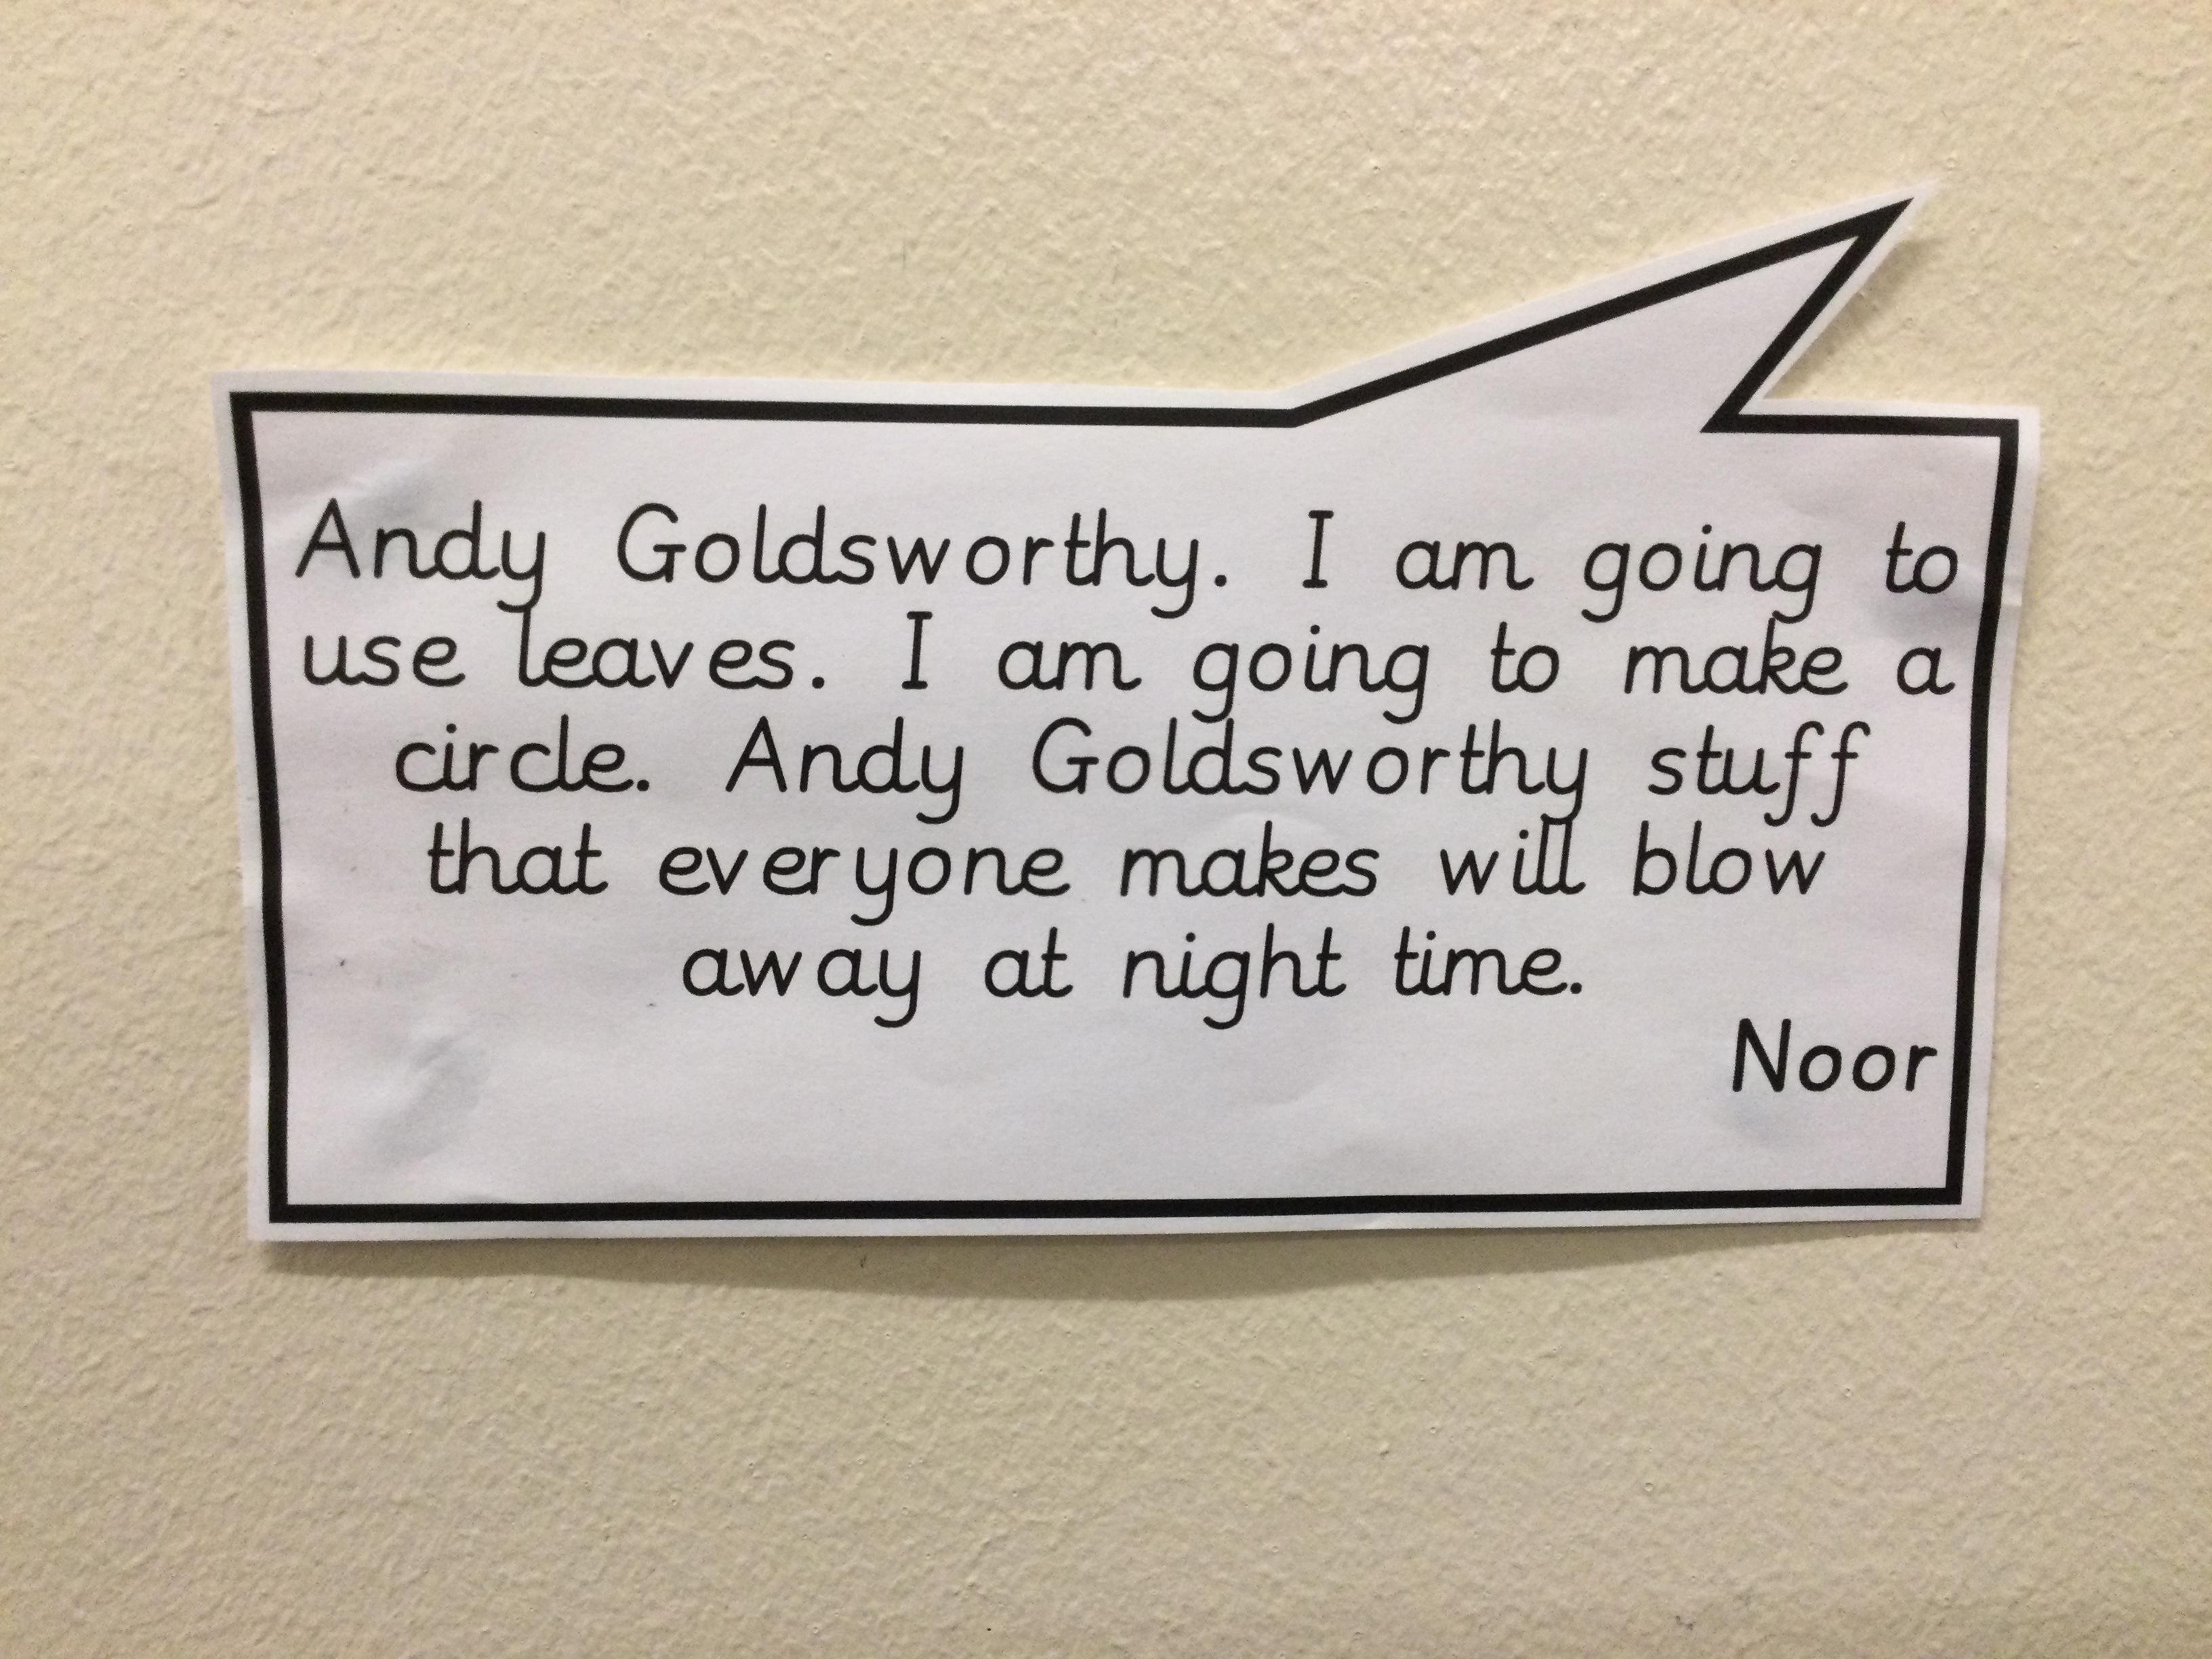 Andy Goldsworthy. I am going to
use leaves. I am going to make a
circle. Andy Goldsworthy stuff
that everyone makes will blow
away at night time.
Noor